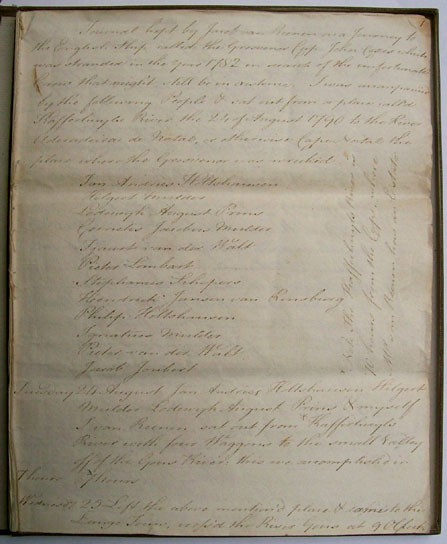 Journal kept by Jacob van Reenen on a Journey to
the English Ship called the Grosvenor Capt John Coxon which
was stranded in the Year 1782 in search of the unfortunate
Crew that might still be in existence I was accompanied
by the following People & set out from a place called
Kaffirkuyls River the 24 of August 1790 to the River
de Natal, or otherwise Cape Natal the
place where the Grosvenor was wrecked
Jan Andries Holtshausen
Helgert Mulder
Lodewyk August Prins
Cornelis Jacobus Mulder
Frans van der Walt
Pieter Lombart
Stephanus Schepers
Hendrick Jansen van Rensburg
Philip Holtshausen
Ignatius Mulder
Pieter van der Walt
Jacob Joubert
Tuesday 24 August Jan Andries Holtshausen Hilgert
Mulder Lodewyk August Prins & myself
J van Reenen set out from Kaffirkuyls
River with four Waggons to the small Valley
off of the Gous River, this we accomplished in
7 hours
7 hours
Wednesday 25 Left the above mention'd place & came to the
Lange Fonn, cross'd the River Gous at 9 O'Clock
N.B. The Kaffirkuyls River is
hours from the Cape where
Mr van Reenen has an Estate